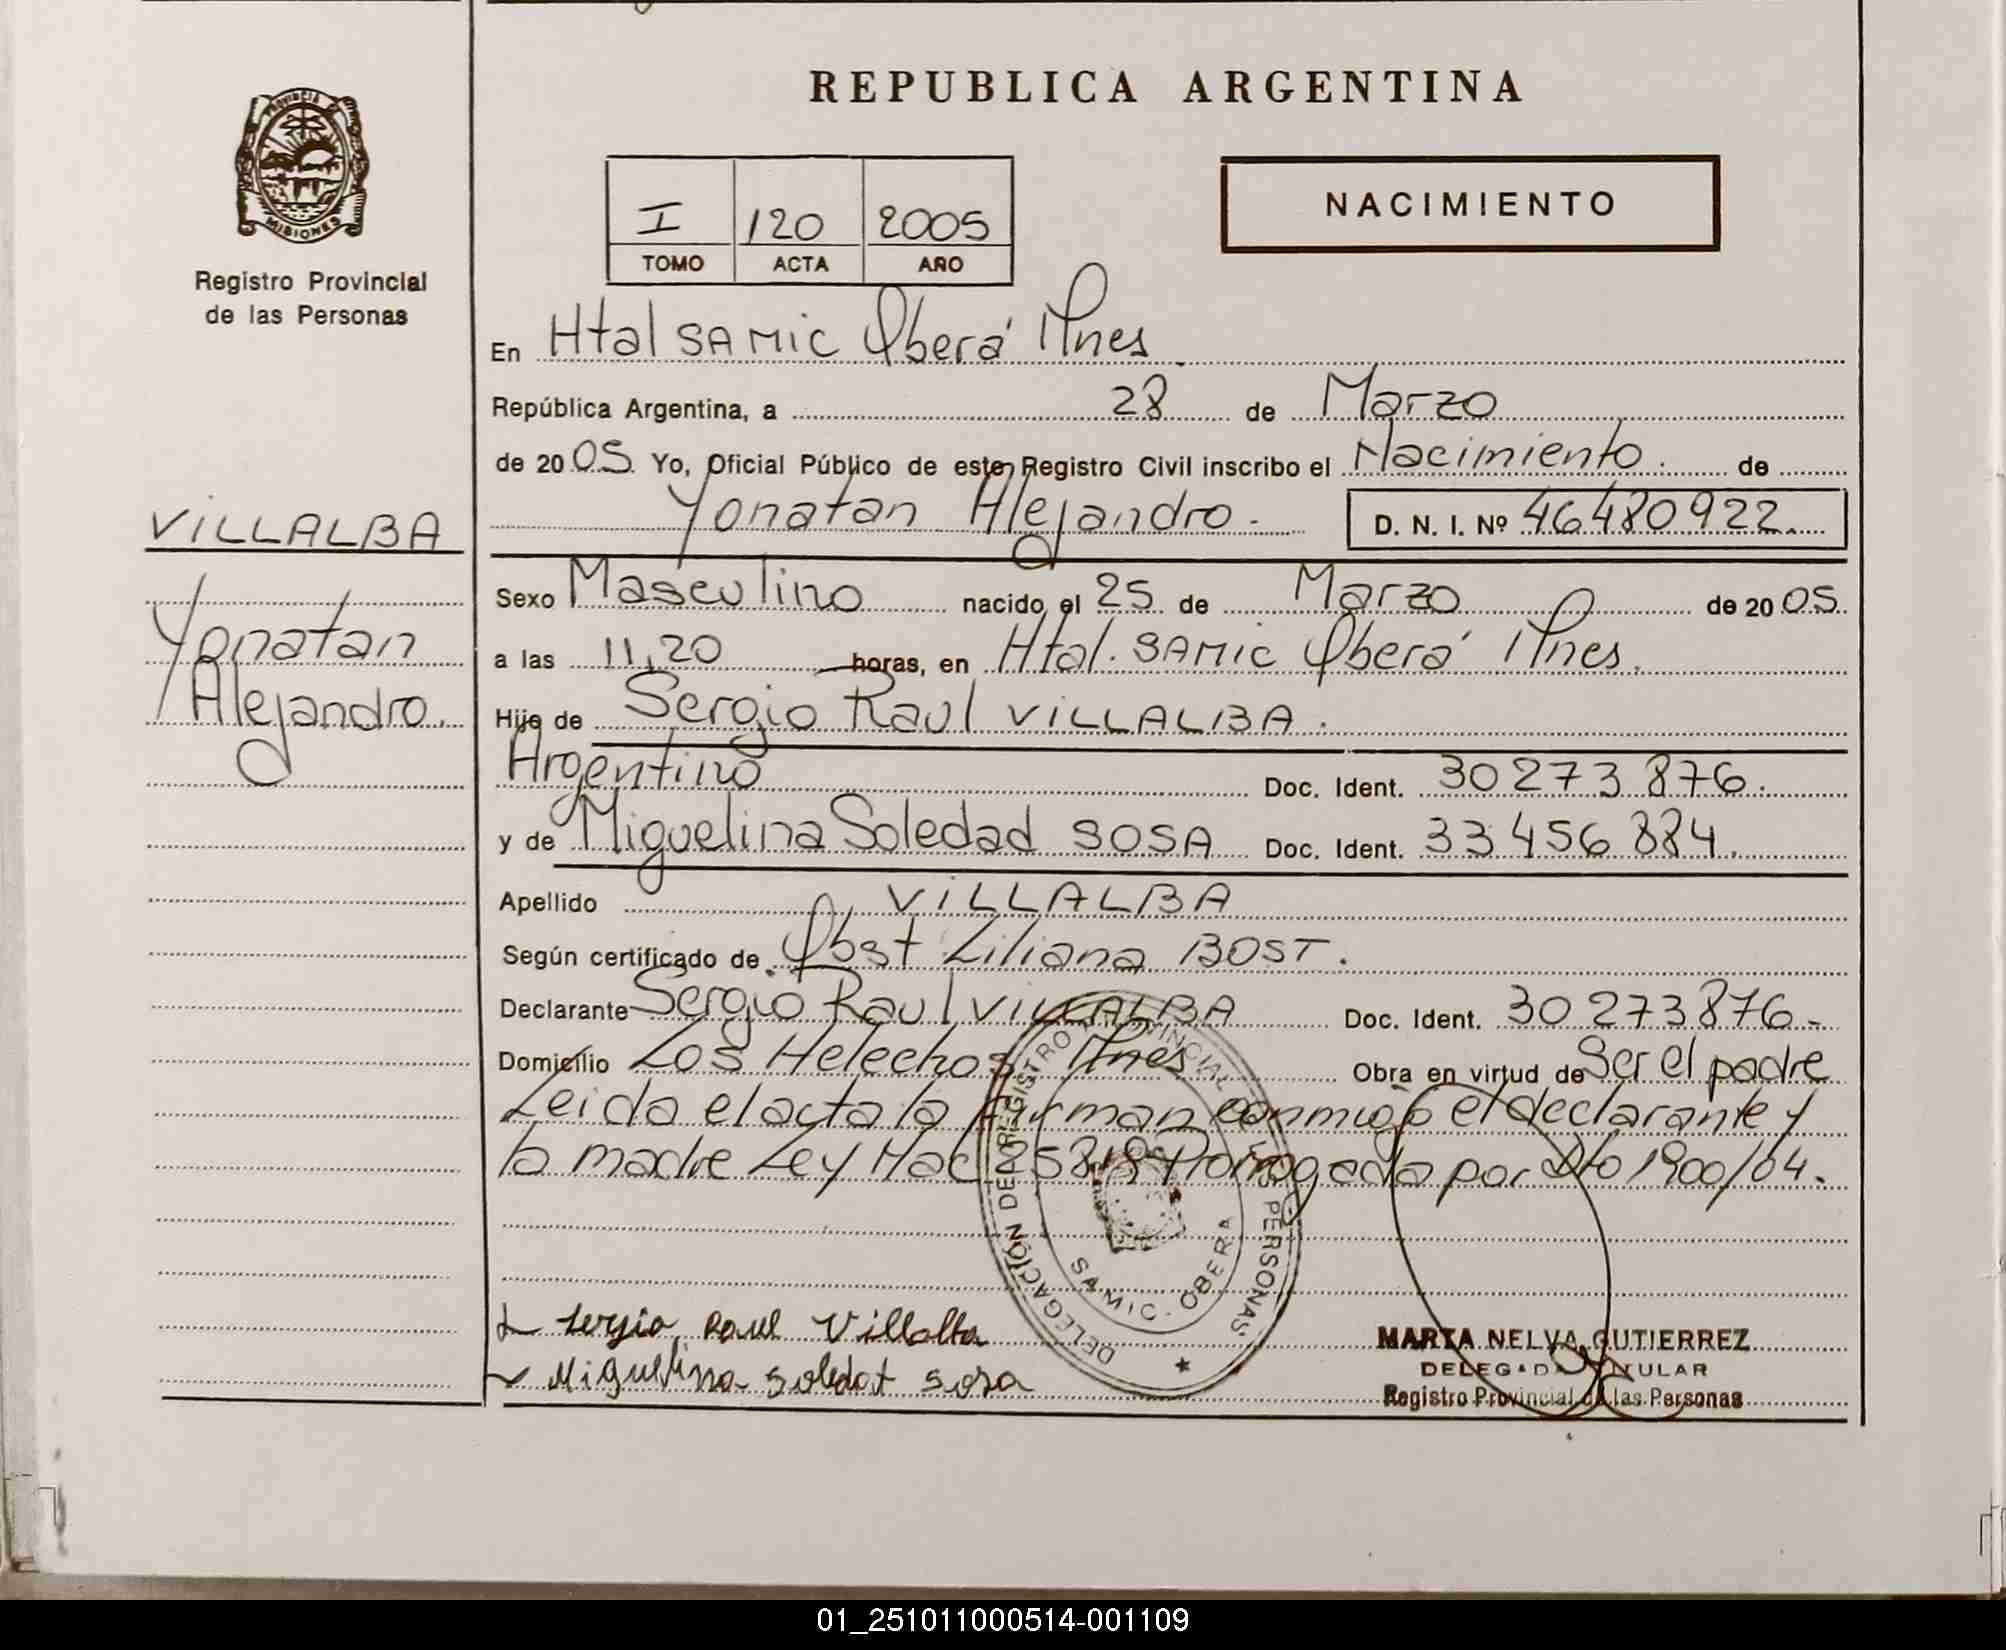 REPUBLICA ARGENTINA
PROVINCIA
MISIONES
Registro Provincial
de las Personas
NACIMIENTO
I 120 2005
TOMO ACTA AÑO
En Htal SAMIC Oberá Mnes
República Argentina, a 28 de Marzo
de 2005. Yo, Oficial Público de este Registro Civil inscribo el Nacimiento. de
Yonatan Alejandro. D. N. I. Nº 46480922.
VILLALBA
Yonatan
Alejandro.
Sexo Masculino nacido el 25 de Marzo de 2005.
a las 11,20 horas, en Htal. SAMIC Oberá Mnes.
Hijo de Sergio Raul VILLALBA.
Argentino Doc. Ident. 30273876.
y de Miguelina Soledad SOSA Doc. Ident. 33456884.
Apellido VILLALBA
Según certificado de Obst Liliana BOST.
Declarante Sergio Raul VILLALBA Doc. Ident. 30273876-
Domicilio Los Helechos Mnes Obra en virtud de Ser el padre
Leida el acta la firman conmigo el declarante y
la madre Ley Nac 25819 Prorrogada por Dto 1900/04.
DELEGACIÓN DEL REGISTRO PROVINCIAL DE LAS PERSONAS
SAMIC - OBERA
Sergio Raul Villalba
Miguelina Soledat Sosa
MARTA NELVA GUTIERREZ
DELEGADA TITULAR
Registro Provincial de las Personas
01_251011000514-001109